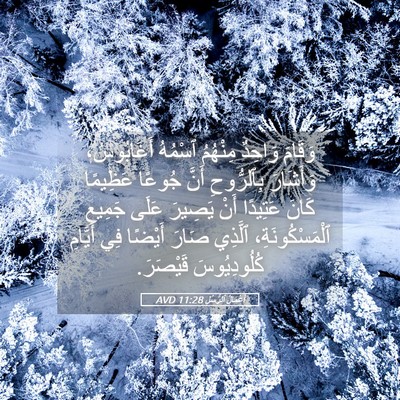 وَقَامَ وَاحِدٌ مِنْهُمُ ٱسْمُهُ أَغَابُوسُ،
وَأَشَارَ بِٱلرُّوحِ أَنَّ جُوعًا عَظِيمًا
كَانَ عَتِيدًا أَنْ يَصِيرَ عَلَى جَمِيعِ
ٱلْمَسْكُونَةِ، ٱلَّذِي صَارَ أَيْضًا فِي أَيَّامِ
كُلُودِيُوسَ قَيْصَرَ.
أَعْمَالُ ٱلرُّسُلِ 11:28 AVD